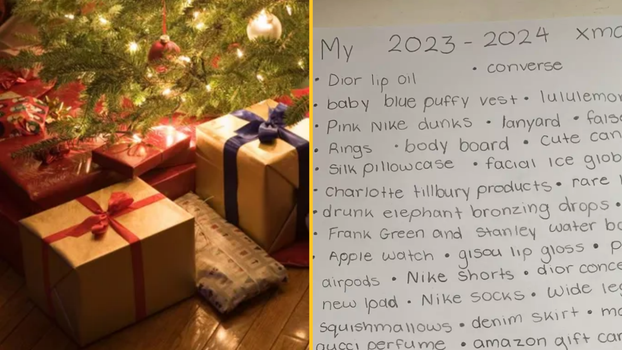 My 2023-2024 xma
• converse
• Dior lip oil
• baby blue puffy vest • lululemon
• Pink Nike dunks • lanyard • false
• Rings • body board • cute can
• Silk pillowcase • facial ice glob
• charlotte tillbury products • rare
• drunk elephant bronzing drops •
• Frank Green and Stanley water bo
• Apple watch • gisou lip gloss • p
airpods • Nike shorts • dior conce
new Ipad • Nike socks • wide leg
squishmallows • denim skirt • ma
gucci perfume • amazon gift car